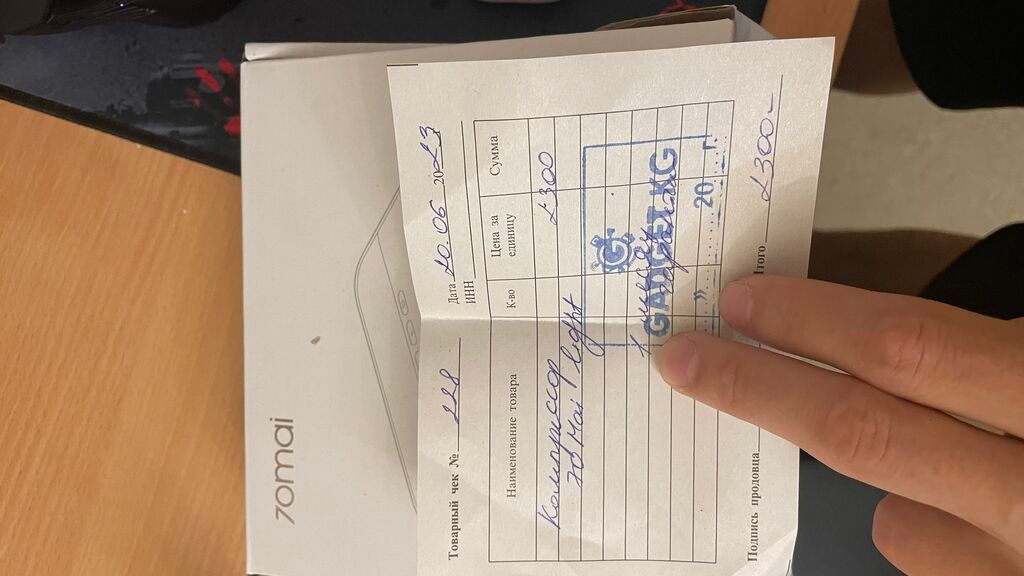 70mai
Товарный чек № 228
Дата 20.06 2023
ИНН
Наименование товара К-во Цена за единицу Сумма
Компрессор 2300
70 Mai light
1 месяц
GADGET KG
» 20 г.
Итого 2300-
Подпись продовца